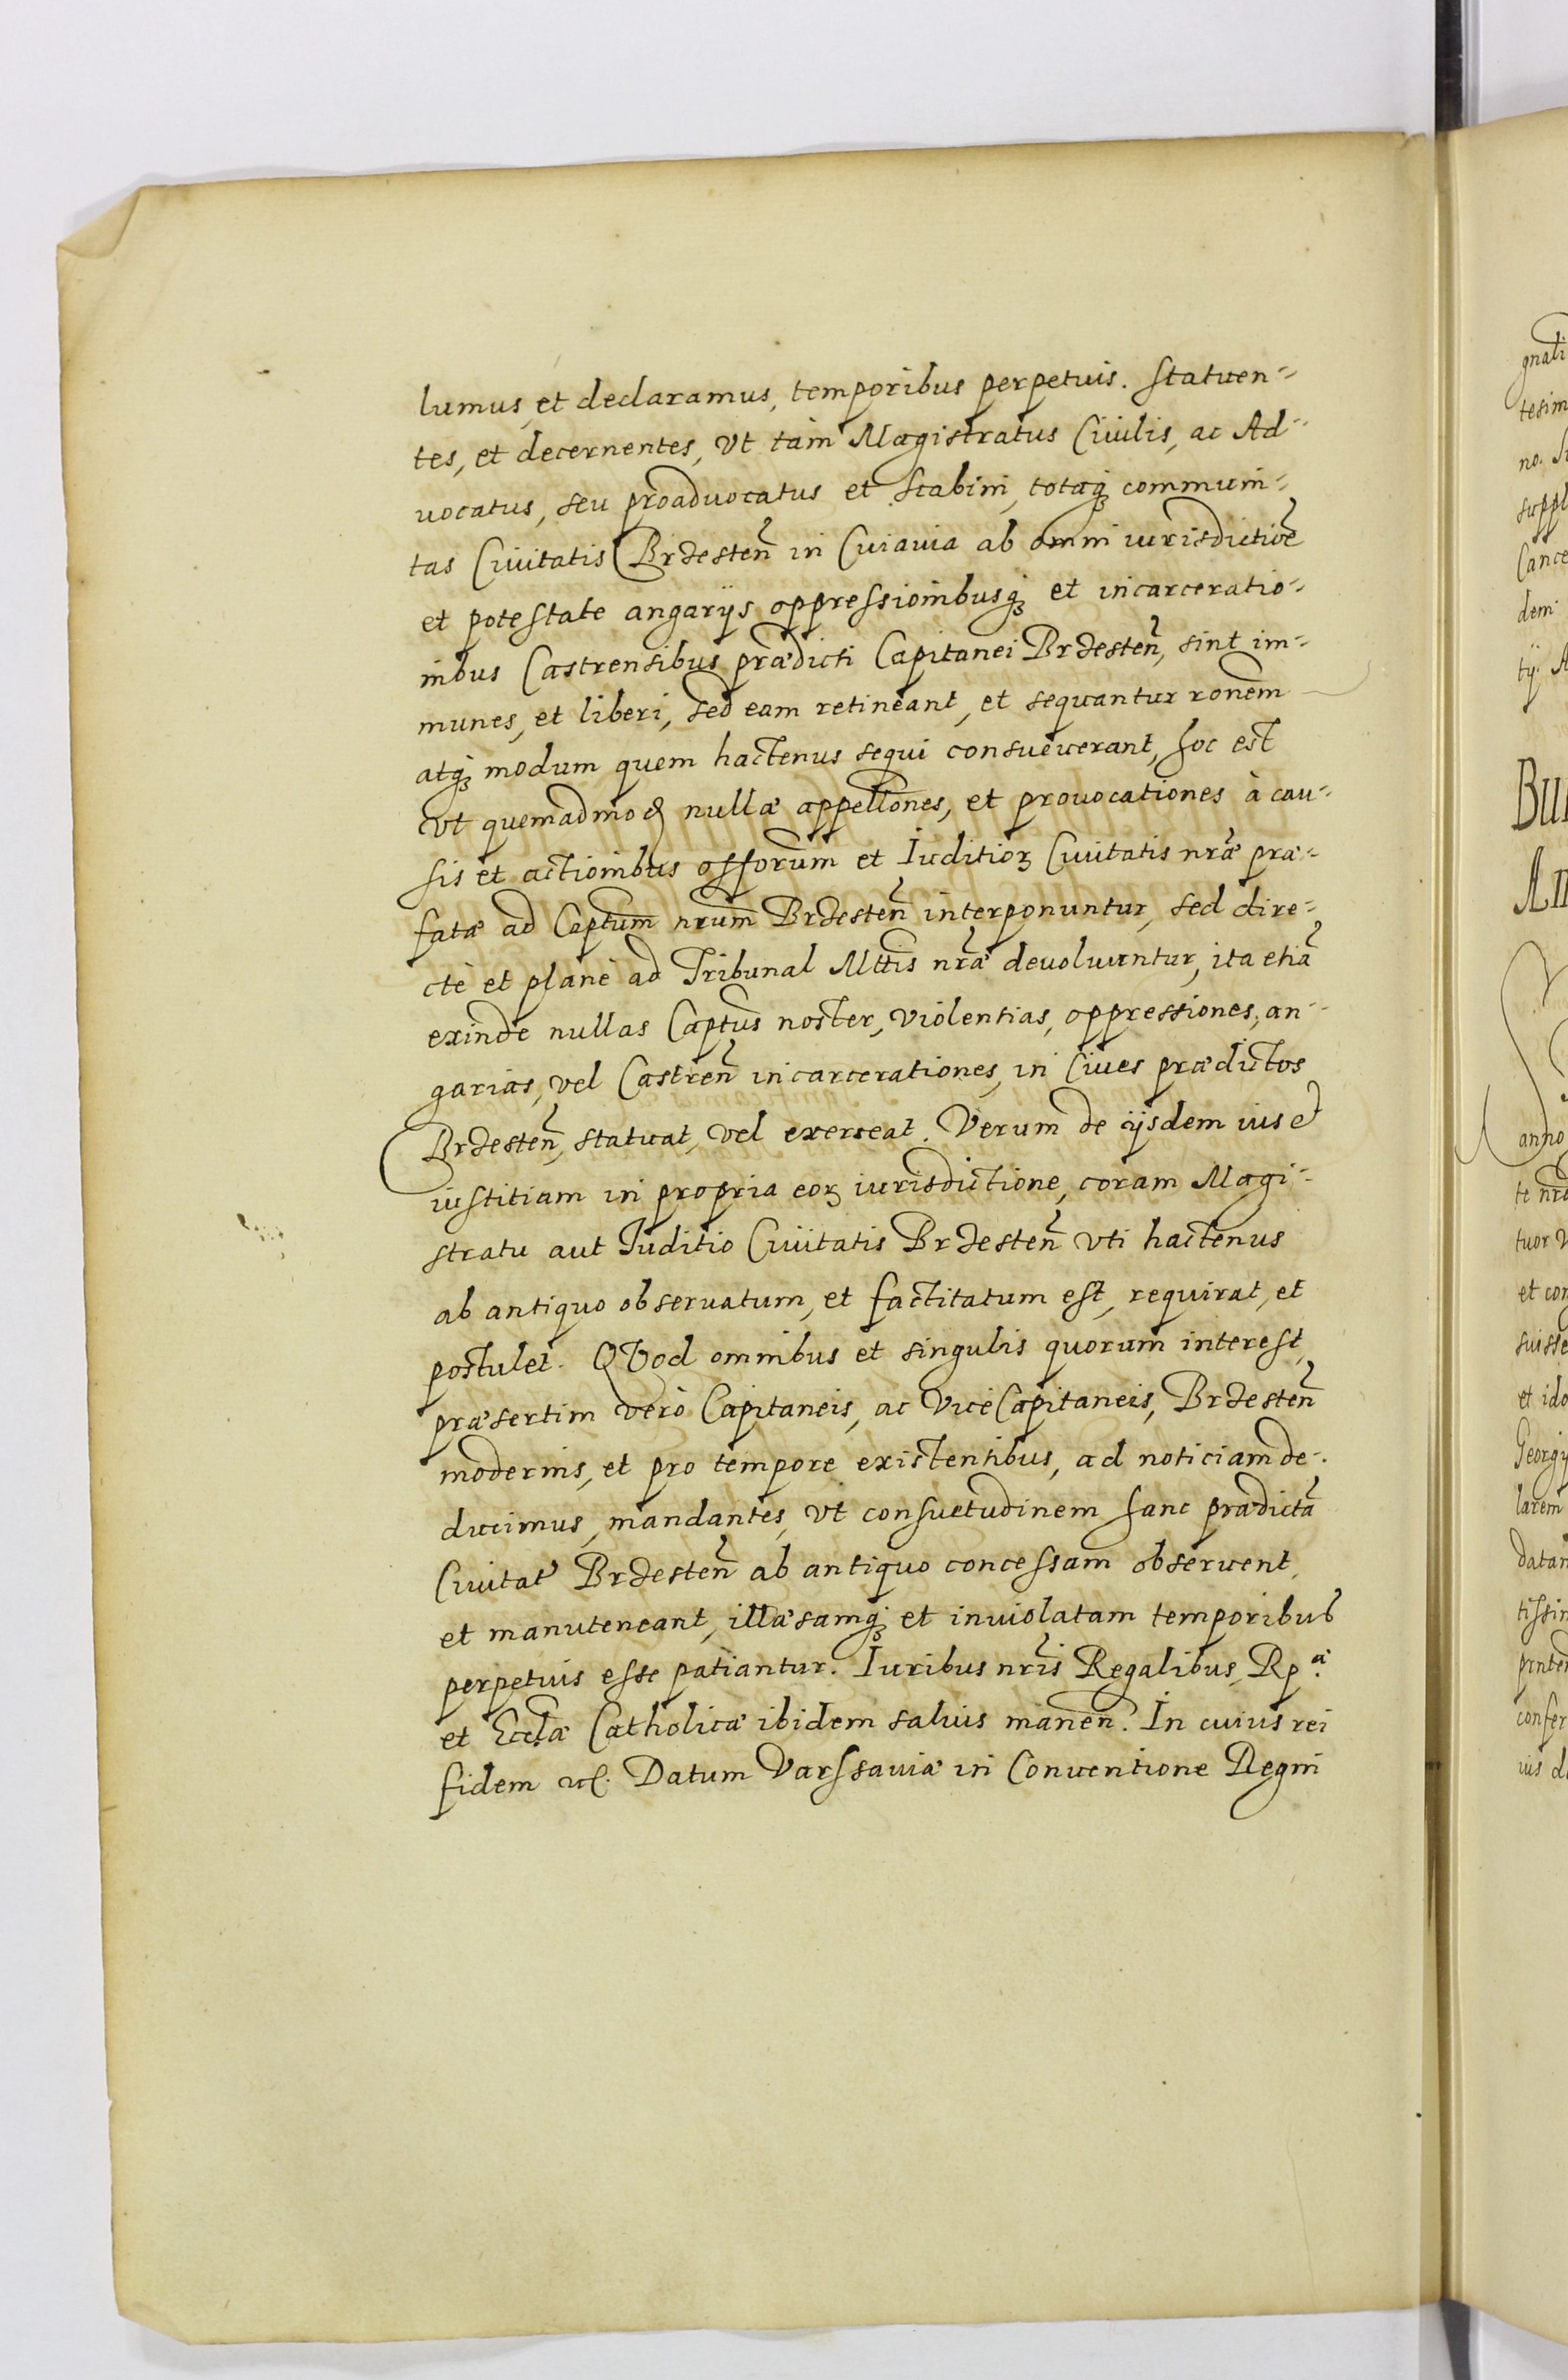 lumus, et declaramus, temporibus perpetuis. Statuen-
tes, et decernentes, Vt tàm Magistratus Ciuilis, ac Ad-
uocatus, seu proaduocatus et Scabini, totaqꝫ communi-
tas Ciuitatis Brzesteñ in Cuiauia ab omni iurisdictiõe
et potestate angarijs oppressionibusqꝫ et incarceratio-
nibus Castrensibus prædicti Capitanei Brzesteñ, sint im-
munes, et liberi, sed eam retineant, et sequantur ronem
atqꝫ modum quem hactenus sequi consueuerant, hoc est
Vt quemadmoḋ nullæ appellones, et prouocationes à cau-
sis et actionibus offorum et Iuditioꝝ Ciuitatis nræ præ-
fatæ ad Captum nrum Brzesteñ interponuntur, sed dire-
ctè et planè ad Tribunal Mttis nræ deuoluuntur, ita etiã
exinde nullas Captus noster, violentias, oppressiones, an-
garias, vel Castreñ incarcerationes, in Ciues prædictos
Brzesteñ, statuat, vel exerceat. Verum de ijsdem ius et
iustitiam in propria eoꝝ iurisdictione, coram Magi-
stratu aut Iuditio Ciuitatis Brzesteñ vti hactenus
ab antiquo obseruatum, et factitatum est, requirat, et
postulet. QVod omnibus et singulis quorum interest,
præsertim verò Capitaneis, ac ViceCapitaneis, Brzesteñ
modernis, et pro tempore existentibus, ad noticiam de-
ducimus, mandantes, vt consuetudinem hanc prædictã
Ciuitat Brzesteñ ab antiquo concessam obseruent,
et manuteneant, illæsamqꝫ et inuiolatam temporibus
perpetuis esse patiantur. Iuribus nris Regalibus, Rpᵃ.
et Ecclæ Catholicæ ibidem saluis maneñ. In cuius rei
fidem ꝛc. Datum Varssauiæ in Conuentione Regni